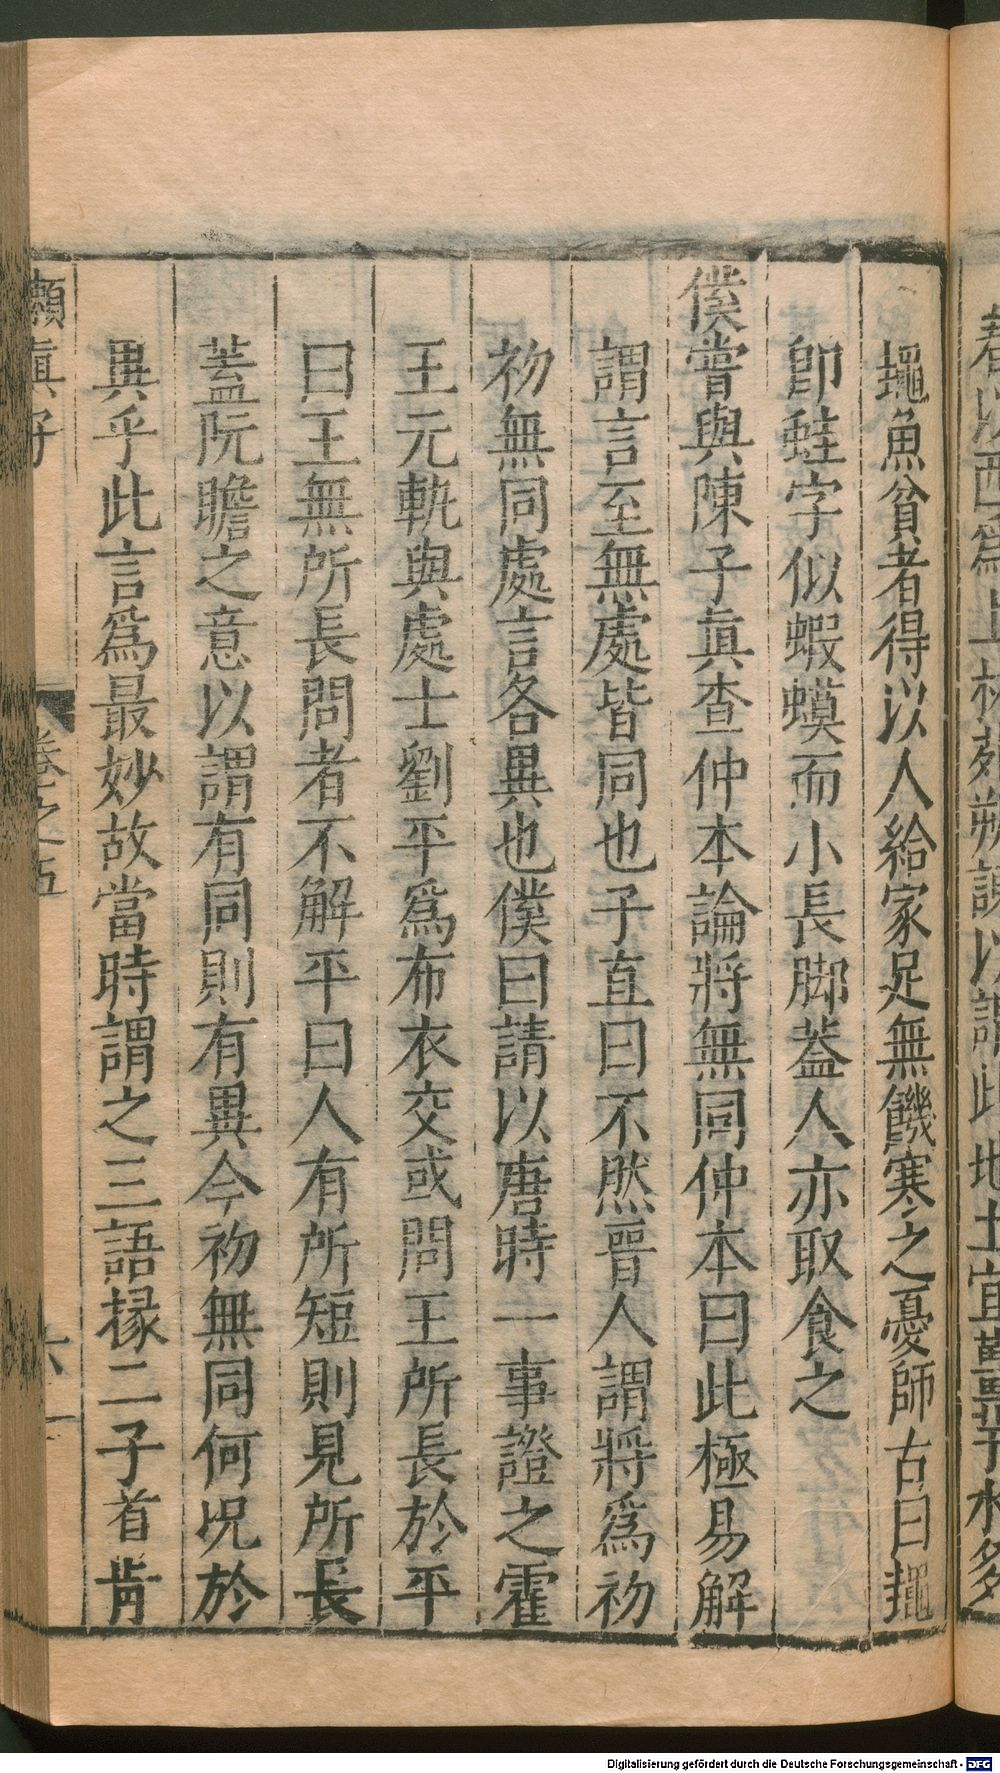 䵷魚貧者得以人給家足無饑寒之憂師古曰䵷
卽蛙字似蝦蟆而小長脚蓋人亦取食之
僕嘗與陳子眞查仲本論將無同仲本曰此極易解
謂言至無處皆同也子直曰不然晉人謂將爲初
初無同處言各異也僕曰請以唐時一事證之霍
王元軌與處士劉平爲布衣交或問王所長於平
曰王無所長問者不解平曰人有所短則見所長
蓋阮瞻之意以謂有同則有異今初無同何況於
異乎此言爲最妙故當時謂之三語掾二子首肯
嬾真子
卷之五
六
Digitalisierung gefördert durch die Deutsche Forschungsgemeinschaft - DFG